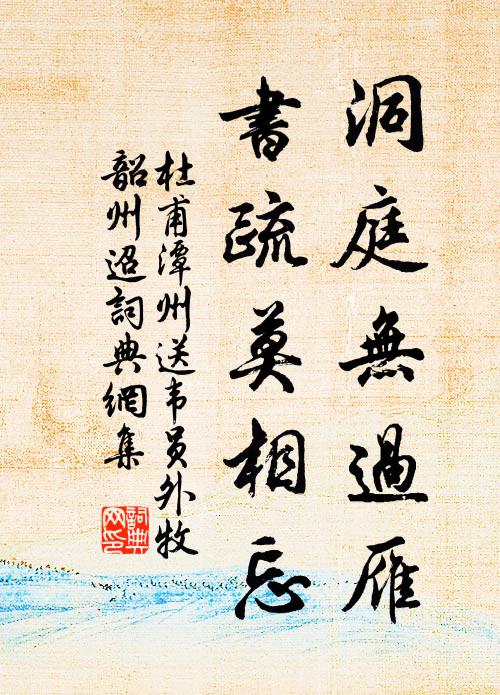 洞庭無過雁
書疏莫相忘
杜甫潭州送韦員外牧
韶州迢詞典網集
詞典
网